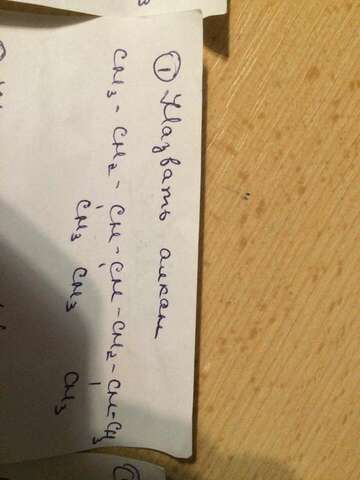 ① Назвать алкан
CH3 - CH2 - CH - CH - CH2 - CH - CH3
CH3 CH3 CH3